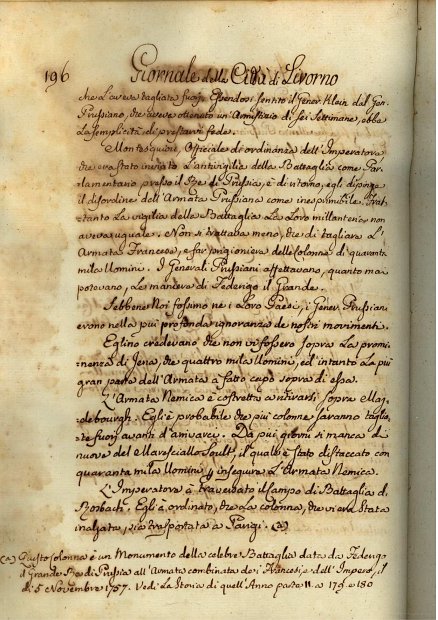 196 Giornale della Città di Livorno
che l'aveva tagliata fuori. Essendosi sentito il Gener. Klein dal Gen.
Prussiano, che aveva ottenuto un Armistizio di sei Settimane, ebbe
la semplicità di prestarvi fede.
Montesquiou, Officiale di ordinanza dell'Imperatore
che era stato inviato l'antivigilia della Battaglia come Par-
lamentario presso il Re di Prussia, è di ritorno, egli dipinge
il disordine dell'Armata Prussiana come inesprimibile. Frat-
tanto la vigilia della Battaglia la loro millanteria non
aveva uguale. Non si trattava meno, che di tagliare l'
Armata Francese, e far prigioniera delle Colonne di quaranta
mila Uomini. I Generali Prussiani affettavano, quanto mai
potevano, le maniere di Federigo il Grande.
Sebbene Noi fossimo ne i loro Paesi, i Gener. Prussiani
erono nella più profonda ignoranza de nostri movimenti.
Eglino credevano che non vi fossero sopra la promi-
nenza di Jena, che quattro mila Uomini, ed intanto la più
gran parte dell'Armata à fatto capo sopra di essa.
L'Armata Nemica è costretta a ritirarsi sopra Mag-
debourgh. Egli è probabile che più colonne saranno taglia-
te fuori avanti d'arrivarci. Da più giorni si manca di
nuove del Maresciallo Soult, il quale è stato distaccato con
quaranta mila Uomini per inseguire l'Armata Nemica.
L'Imperatore à traversato il Campo di Battaglia di
Rosbach. Egli à ordinato, che la colonna, che vi era stata
inalzata, sia trasportata a Parigi. (a)
(a) Questa colonna è un Monumento della celebre Battaglia data da Federigo
il Grande Re di Prussia all'Armata combinata de i Francesi e dell'Impero, il
dì 5 Novembre 1757. Vedi la Storia di quell'Anno parte II. a 179. e 180